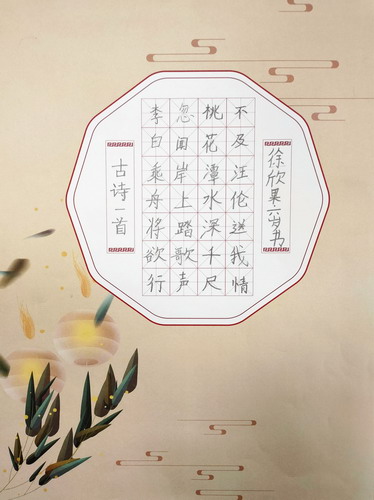 古诗一首
李白乘舟将欲行
忽闻岸上踏歌声
桃花潭水深千尺
不及汪伦送我情
徐欣 六岁书